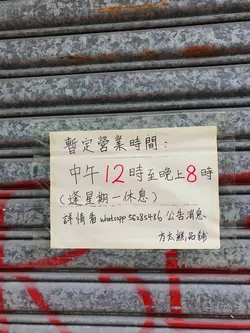 暫定營業時間：
中午12時至晚上8時
（逢星期一休息）
詳情看whatsapp 56285486 公告消息